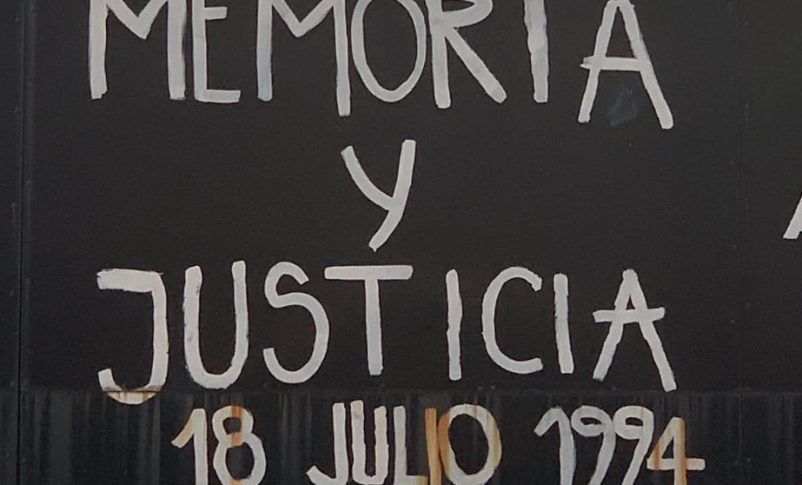 MEMORIA
y
JUSTICIA
18 JULIO 1994